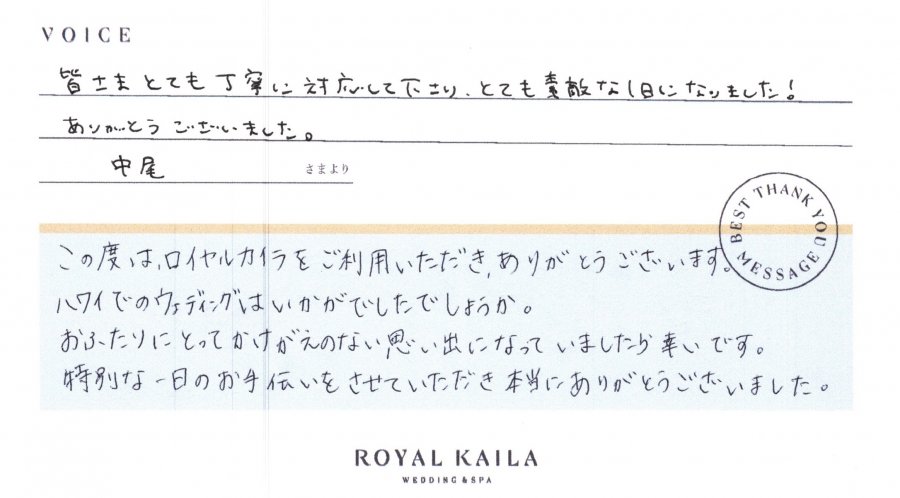 VOICE
皆さま とても 丁寧に 対応して下さり、とても素敵な1日になりました！
ありがとう ございました。
中尾 さまより
BEST THANK YOU MESSAGE
この度は、ロイヤルカイラをご利用いただき、ありがとうございます。
ハワイでのウェディングはいかがでしたでしょうか。
おふたりにとってかけがえのない思い出になっていましたら幸いです。
特別な一日のお手伝いをさせていただき本当にありがとうございました。
ROYAL KAILA
WEDDING & SPA